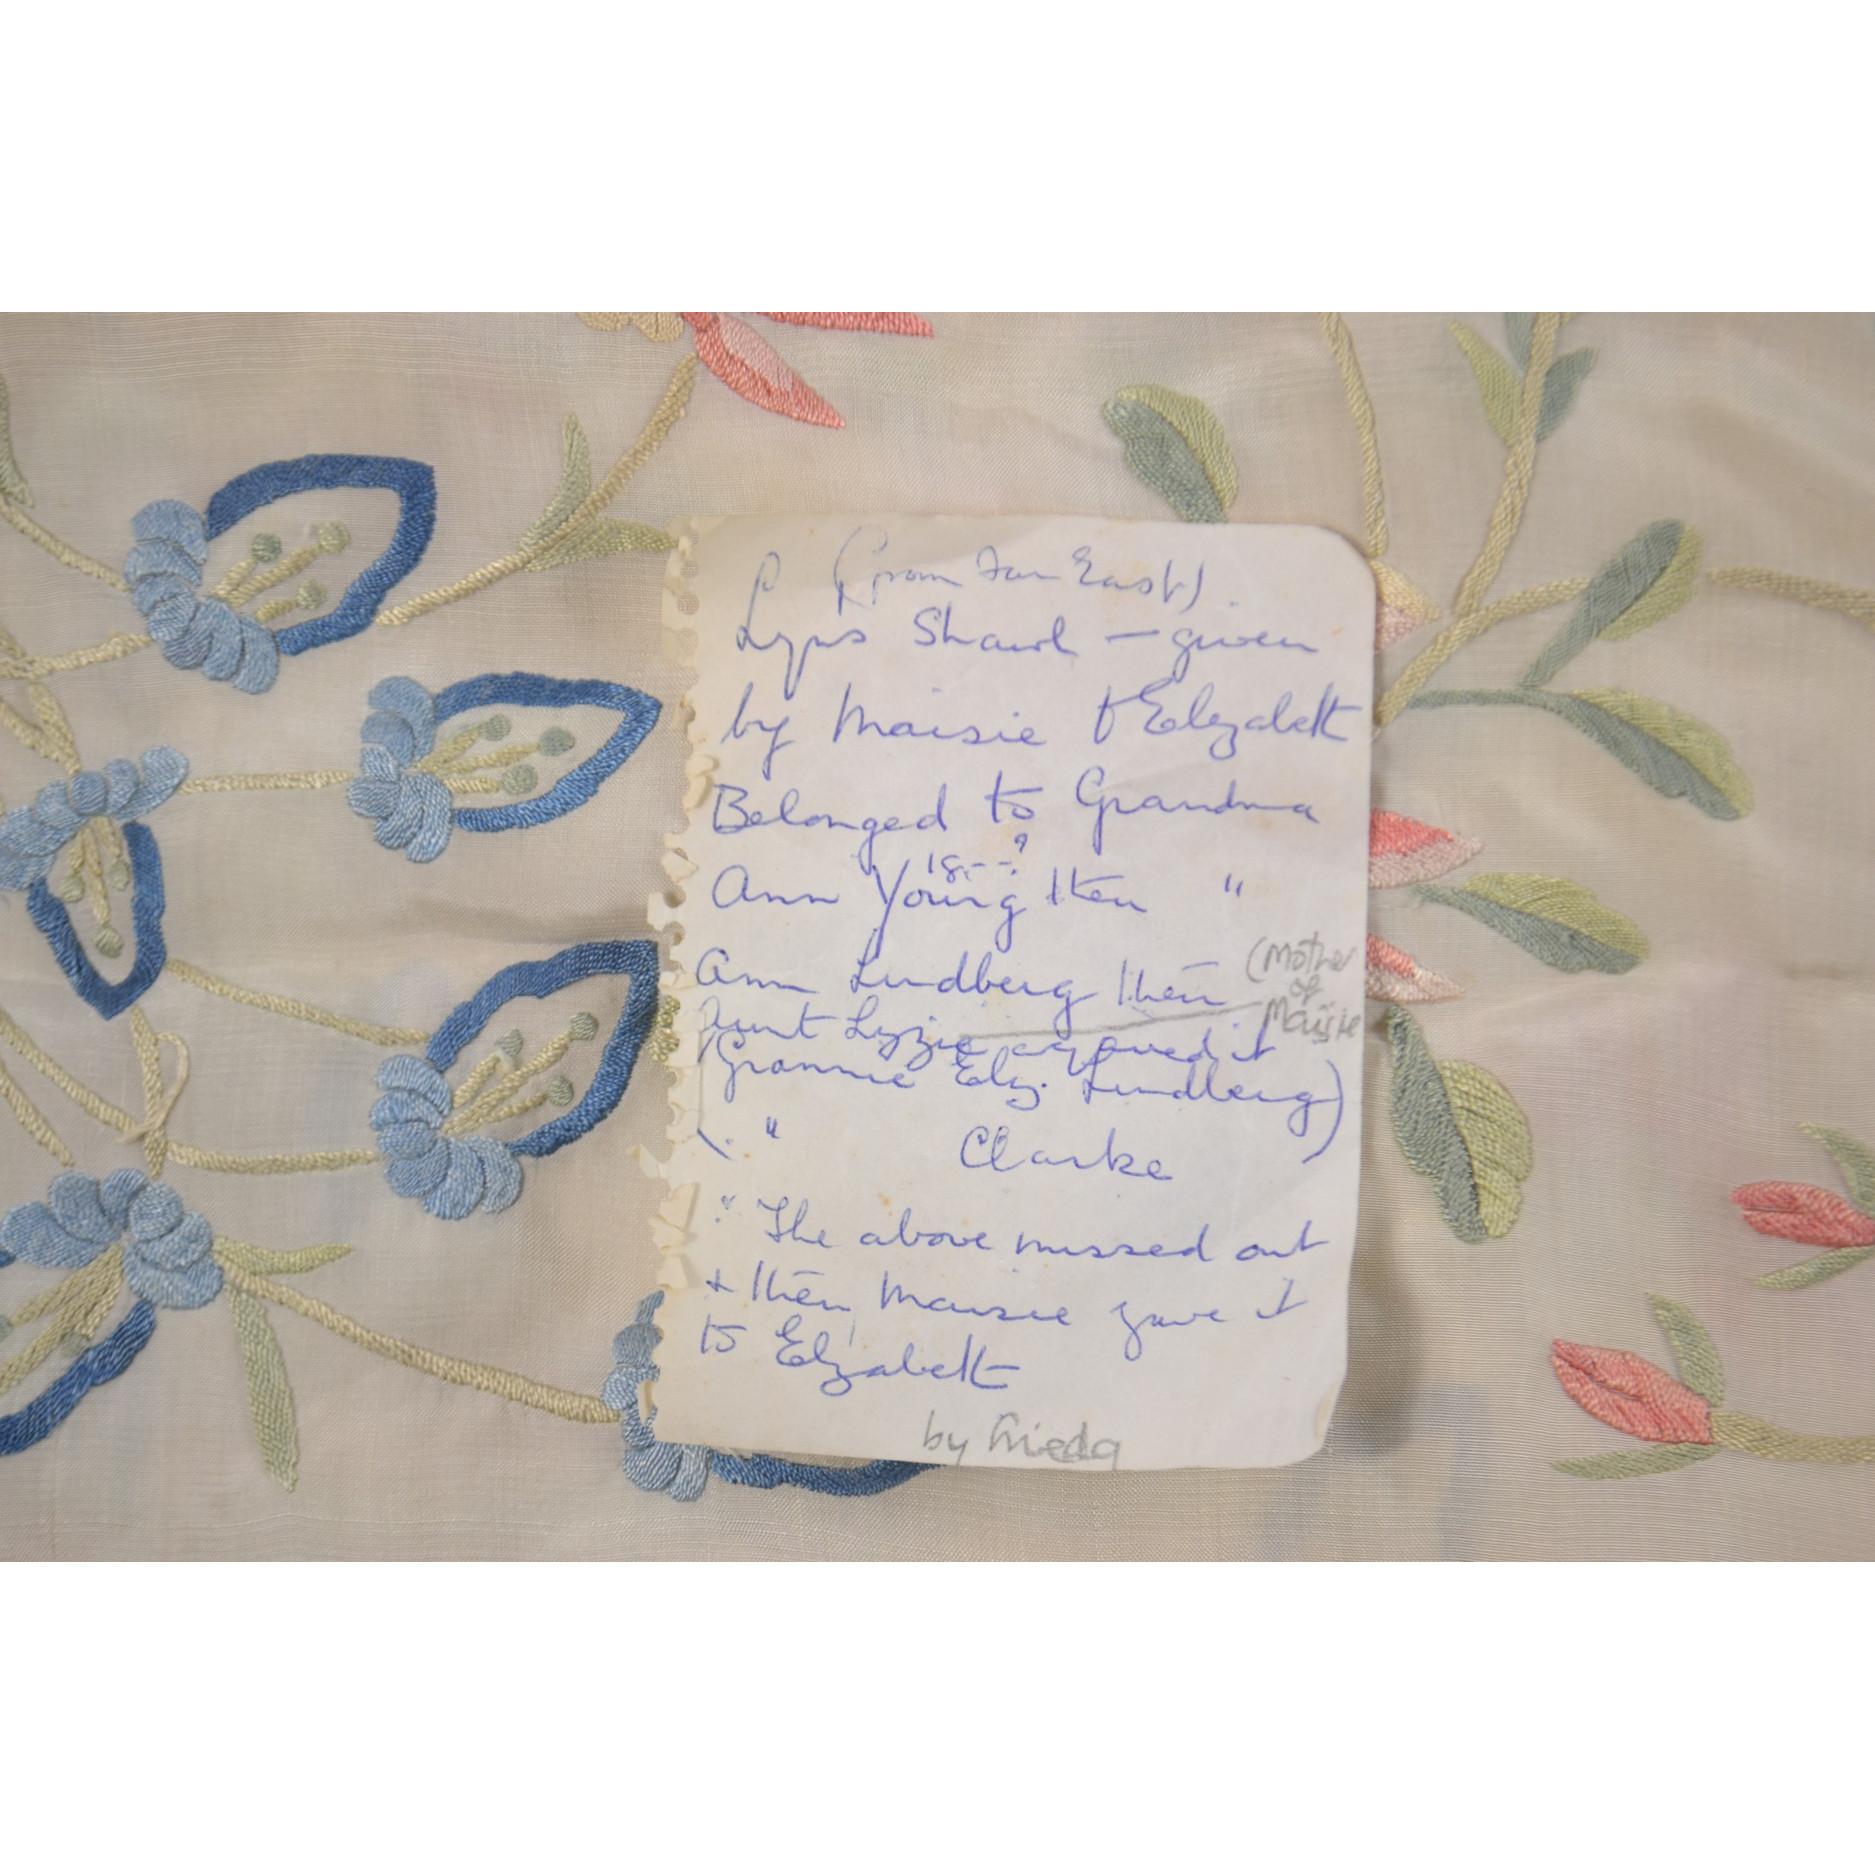 (from Far East).
Shawl - given
by Maisie to Elizabeth
Belonged to Grandma
18--?
Ann Young then "
Ann Lindberg then (Mother
of
Maisie
Aunt Lizzie acquired it
(Grannie Eliz. Lindberg)
( " Clarke )
The above missed out
+ then Maisie gave it
to Elizabeth
by Frieda